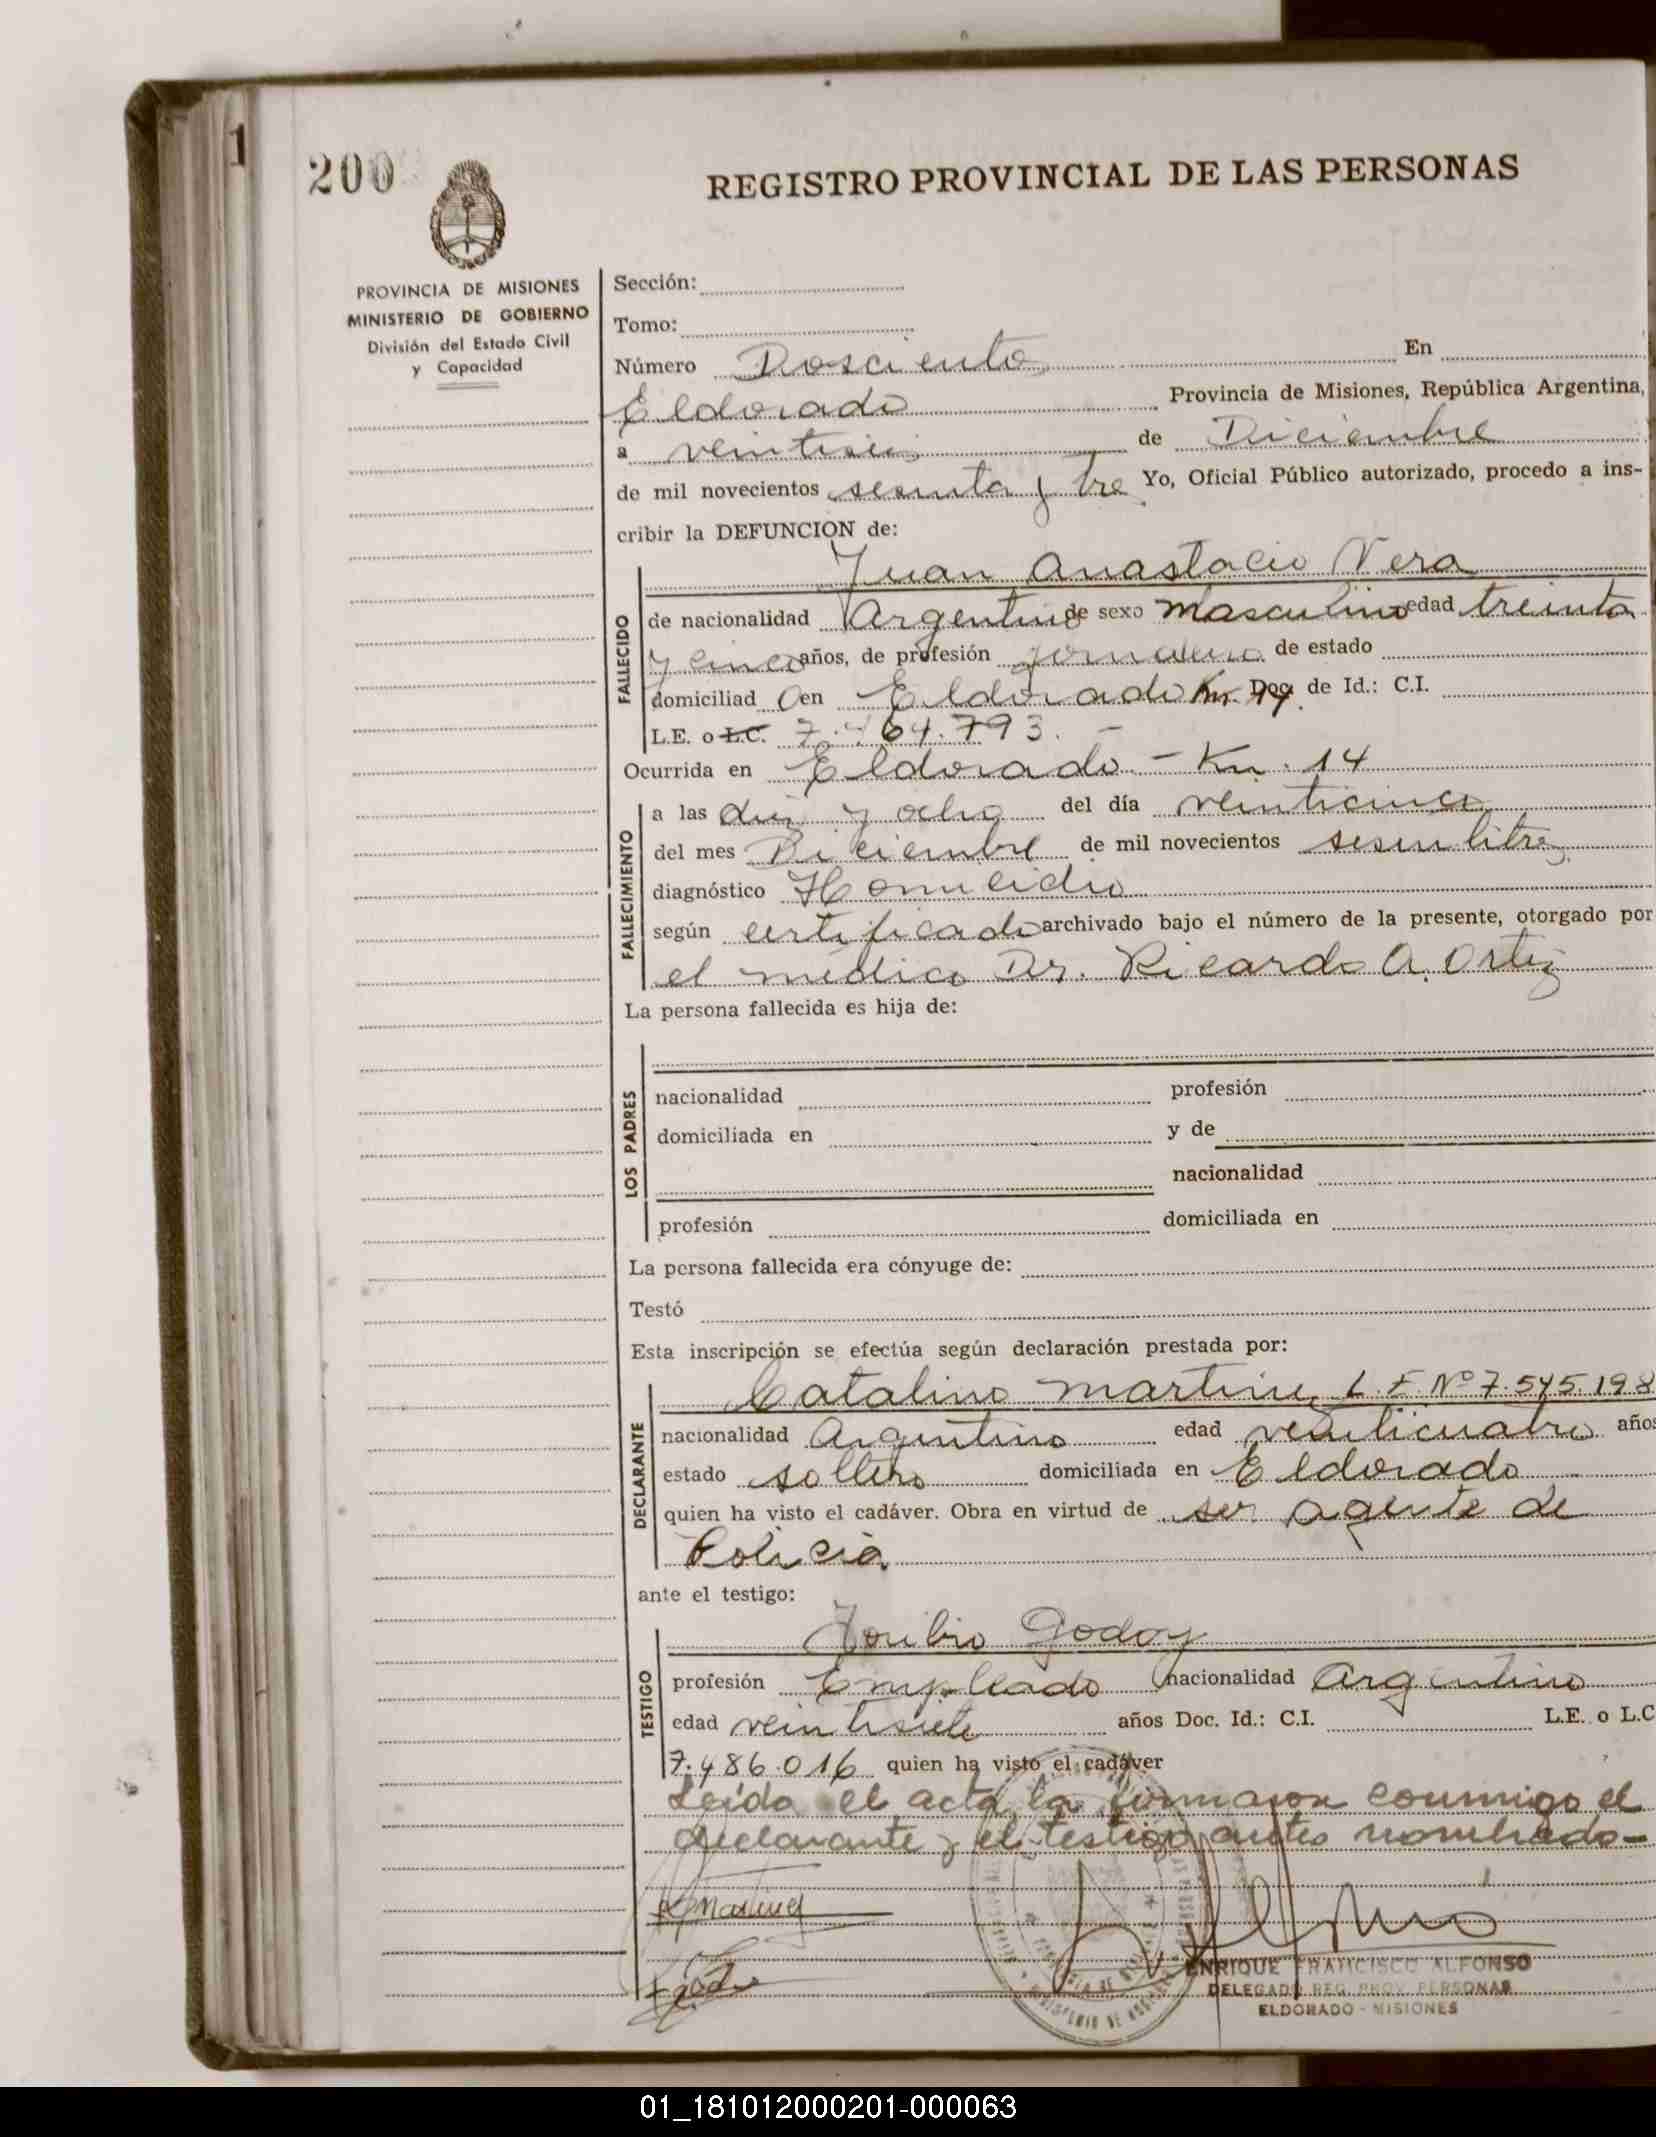 1
200
REGISTRO PROVINCIAL DE LAS PERSONAS
PROVINCIA DE MISIONES
MINISTERIO DE GOBIERNO
División del Estado Civil
y Capacidad
Sección:
Tomo:
Número Doscientos En
Eldorado Provincia de Misiones, República Argentina,
a veintiseis de Diciembre
de mil novecientos sesenta y tres Yo, Oficial Público autorizado, procedo a ins-
cribir la DEFUNCION de:
FALLECIDO
Juan Anastacio Vera
de nacionalidad Argentino de sexo masculino edad treinta
y cinco años, de profesión jornalero de estado
domiciliad o en Eldorado Km. 14. Doc. de Id.: C.I.
L.E. o L.C. 7.464.793.-
Ocurrida en Eldorado - Km. 14
FALLECIMIENTO
a las diez y ocho del día veinticinco
del mes Diciembre de mil novecientos sesentitres
diagnóstico Homicidio
según certificado archivado bajo el número de la presente, otorgado por
el médico Dr. Ricardo A. Ortiz
La persona fallecida es hija de:
LOS PADRES
nacionalidad profesión
domiciliada en y de
nacionalidad
profesión domiciliada en
La persona fallecida era cónyuge de:
Testó
Esta inscripción se efectúa según declaración prestada por:
DECLARANTE
Catalino Martinez L.E. Nº 7.545.198
nacionalidad Argentino edad veinticuatro años
estado soltero domiciliada en Eldorado
quien ha visto el cadáver. Obra en virtud de ser agente de
Policia
ante el testigo:
TESTIGO
Toribio Godoy
profesión Empleado nacionalidad Argentino
edad veintisiete años Doc. Id.: C.I. L.E. o L.C
7.486.016 quien ha visto el cadáver
Leída el acta la firmaron conmigo el
declarante y el testigo antes nombrado-
Martinez
ENRIQUE FRANCISCO ALFONSO
DELEGADO REG. PROV. PERSONAS
ELDORADO - MISIONES
01_181012000201-000063